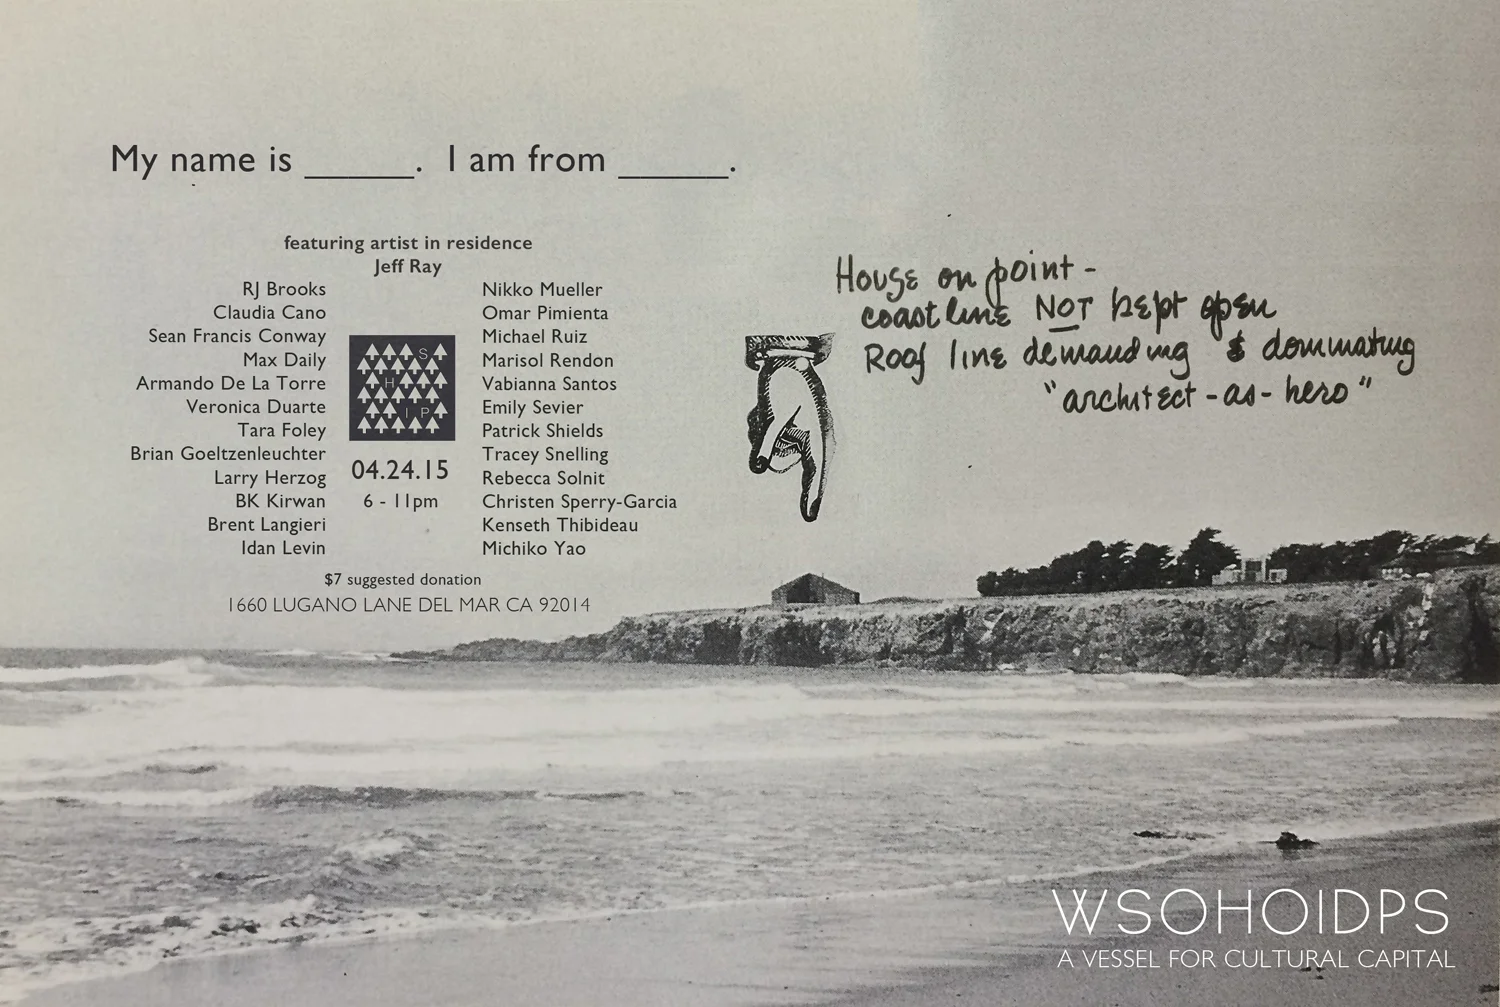 My name is ______. I am from ______.
featuring artist in residence
Jeff Ray
RJ Brooks
Claudia Cano
Sean Francis Conway
Max Daily
Armando De La Torre
Veronica Duarte
Tara Foley
Brian Goeltzenleuchter
Larry Herzog
BK Kirwan
Brent Langieri
Idan Levin
S
H
I P
04.24.15
6 - 11pm
Nikko Mueller
Omar Pimienta
Michael Ruiz
Marisol Rendon
Vabianna Santos
Emily Sevier
Patrick Shields
Tracey Snelling
Rebecca Solnit
Christen Sperry-Garcia
Kenseth Thibideau
Michiko Yao
$7 suggested donation
1660 LUGANO LANE DEL MAR CA 92014
House on point -
coastline NOT kept open
Roof line demanding & dominating
"architect-as-hero"
WSOHOIDPS
A VESSEL FOR CULTURAL CAPITAL